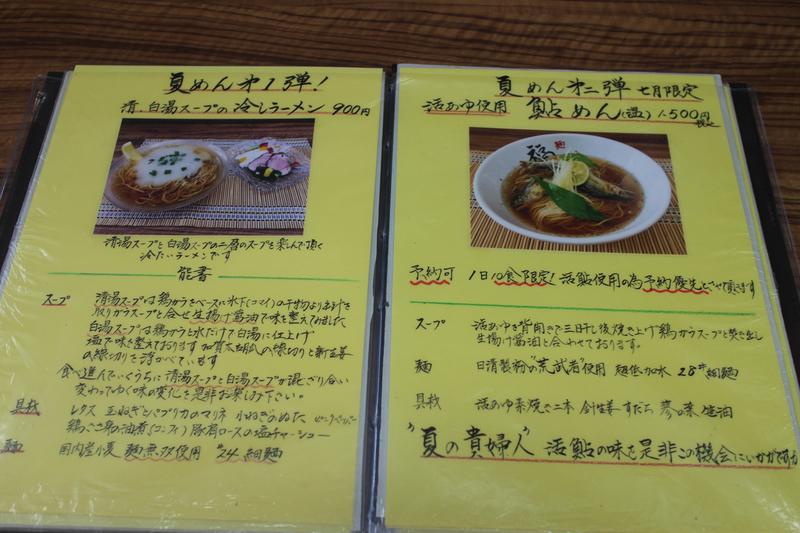 夏めん才1弾!
清、白湯スープの冷しラーメン 900円
清湯スープと白湯スープの二層のスープを楽しんで頂く
冷たいラーメンです
能書
スープ 清湯スープは鶏がらをベースに氷下(コマイ)の干物より出汁を
取りがらスープと合せ生揚げ醤油で味を整えてみました
白湯スープは鶏がらと水だけで白湯に仕上げ
塩で味を整えております 加賀太胡瓜の線切りと新生姜
の線切りを浮かべています
食べ進んでいくうちに清湯スープと白湯スープが混ざり合い
変わってゆく味の変化を是非お楽しみ下さい。
具材 レタス 玉ねぎとパプリカのマリネ 小ねぎのぬた ピンクペッパー
鶏ごこ郭の油煮(コンフィ) 豚肩ロースの塩チャーシュー
麺 国内産小麦 麺無双使用 #24 細麺
夏めん才二弾 七月限定
活あゆ使用 鮎めん(温) 1,500円
税込
福
予約可 1日10食限定! 活鮎使用の為予約優先とさせて頂きます
スープ 活あゆを背開きで三日干し後焼き上げ鶏がらスープと焚き出し
生揚げ醤油と合わせております。
麺 日清製粉の"荒武者"使用 超低加水 28#細麺
具材 活あゆ素焼き二本 針生姜 すだち 蓼の葉 生油
"夏の貴婦人" 活鮎の味を是非この機会にいかがですか